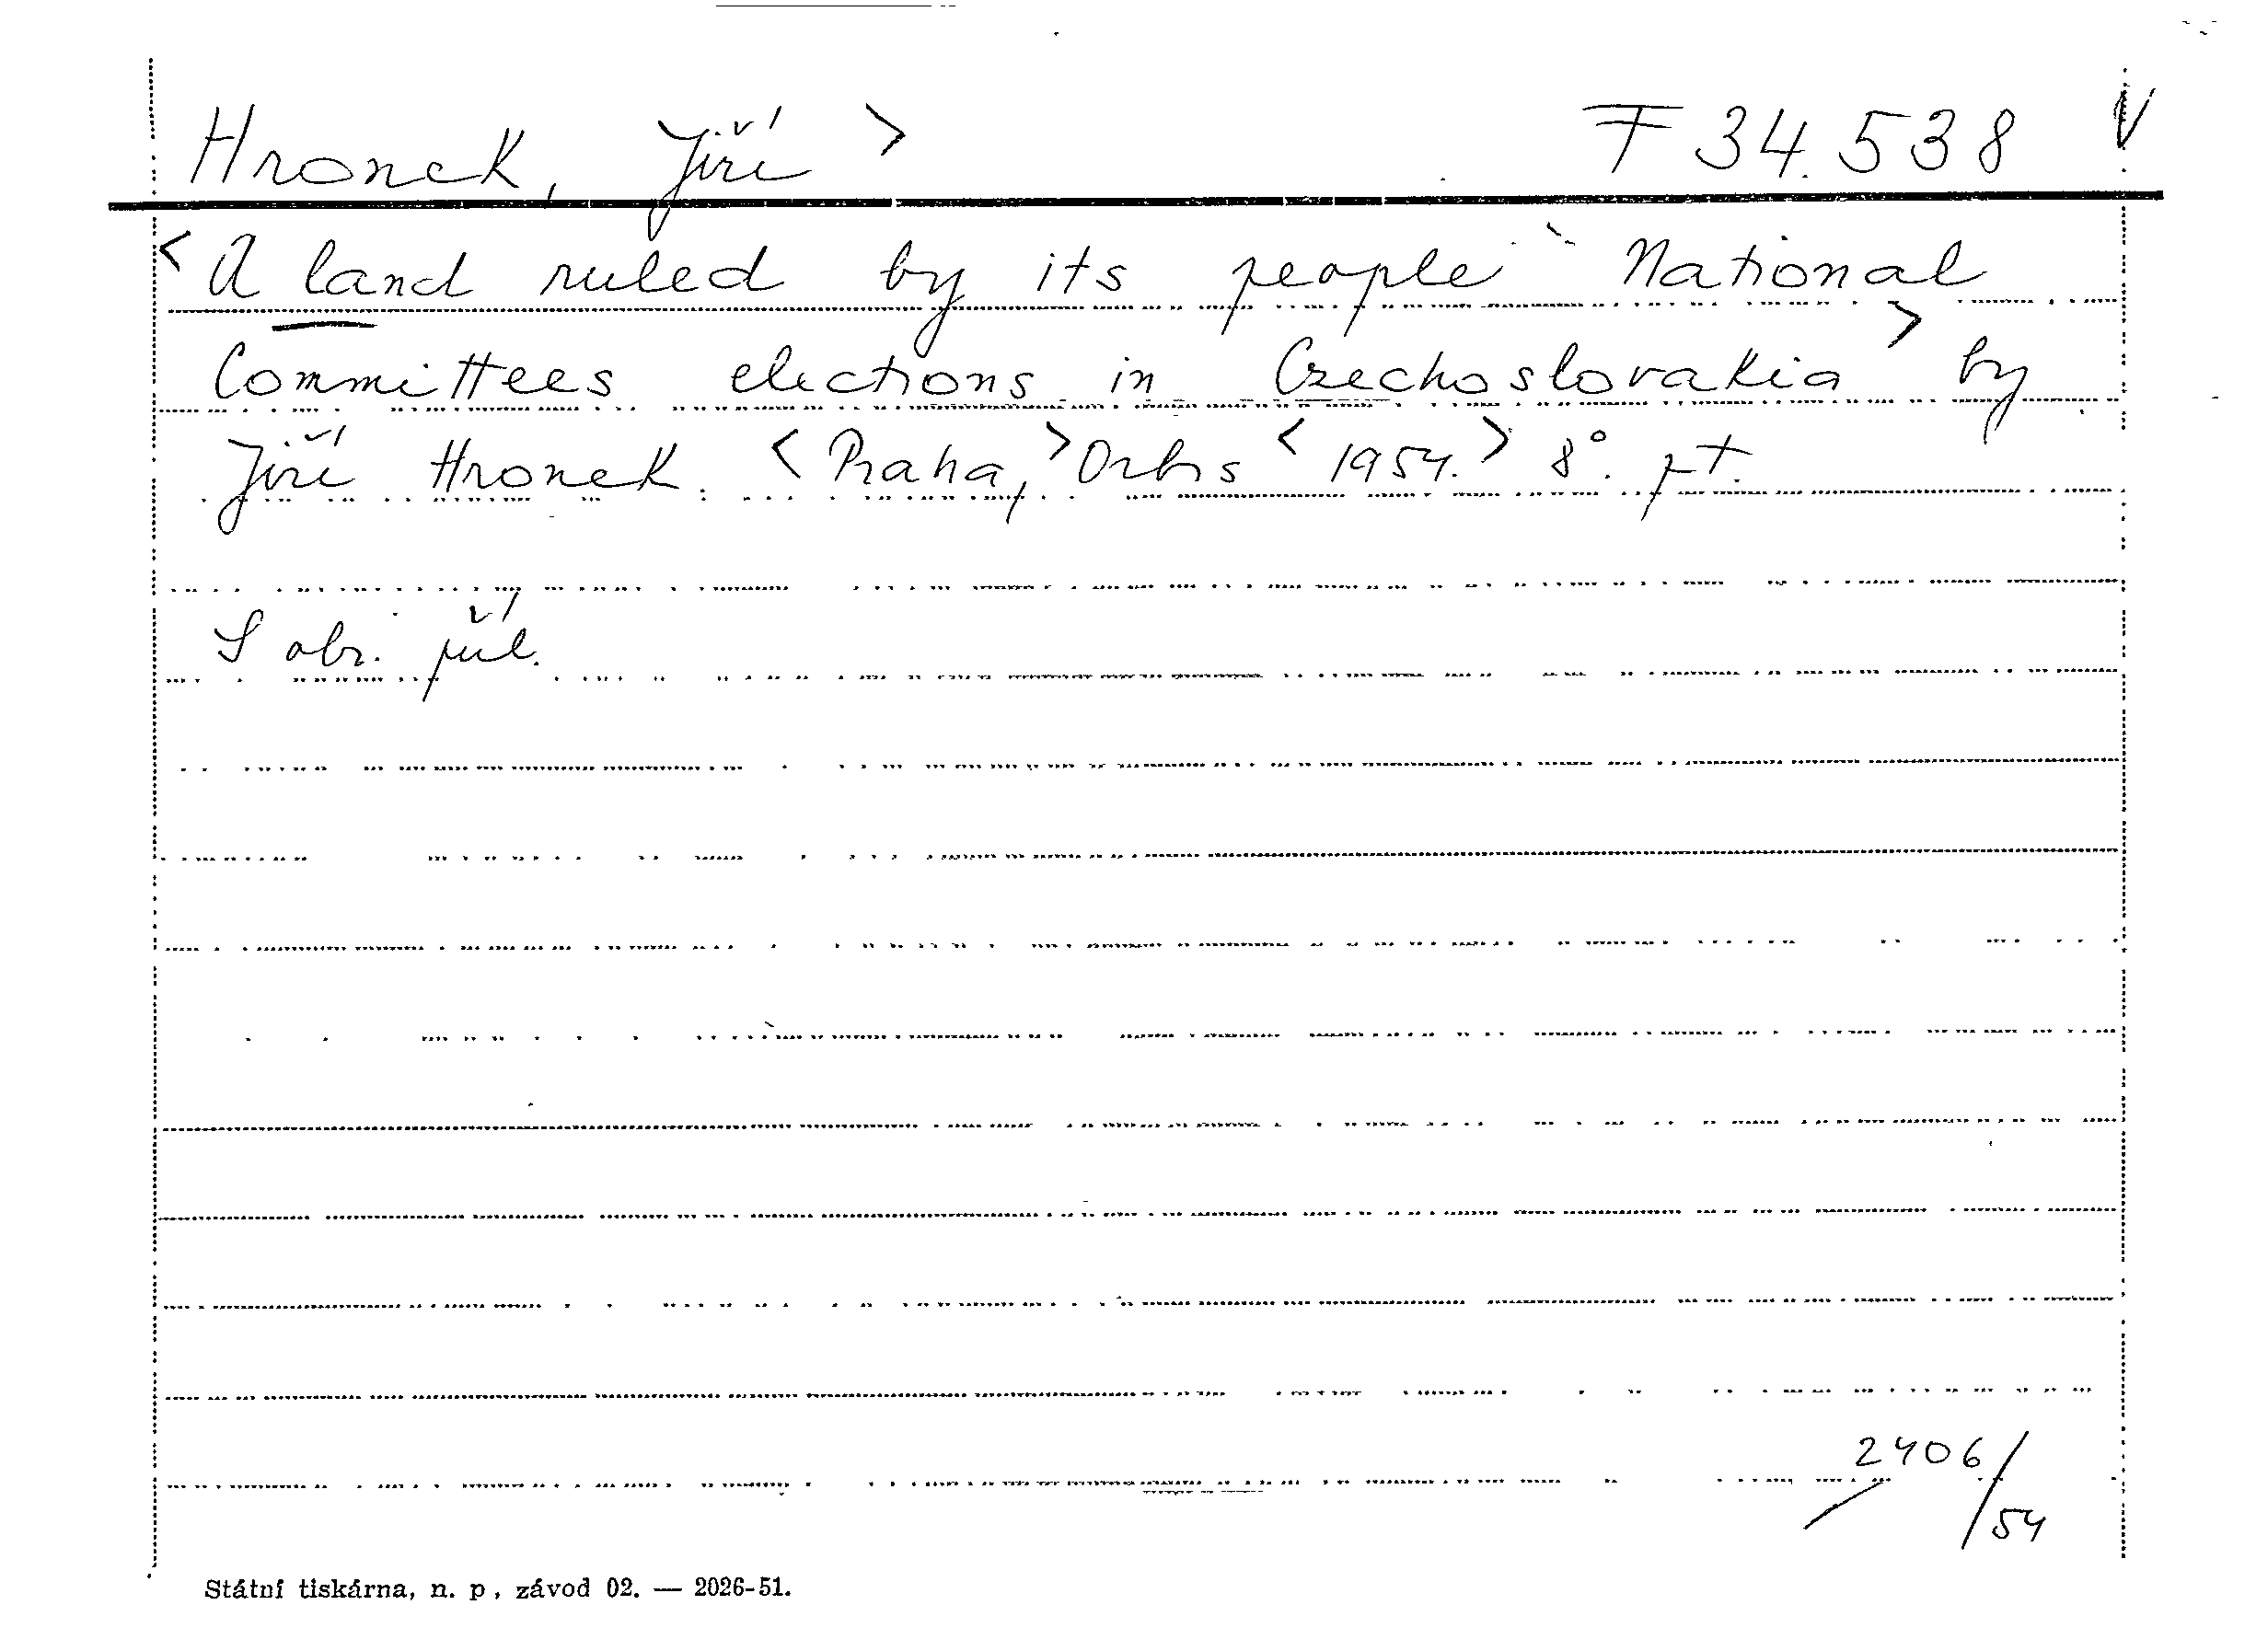 Hronek, Jiří > F 34.538 V
< A land ruled by its people National
Committees elections in Czechoslovakia > by
Jiří Hronek. < Praha, > Orbis < 1954. > 8°. pt.
S obr. příl.
2406/
54
Státní tiskárna, n. p., závod 02. — 2026-51.